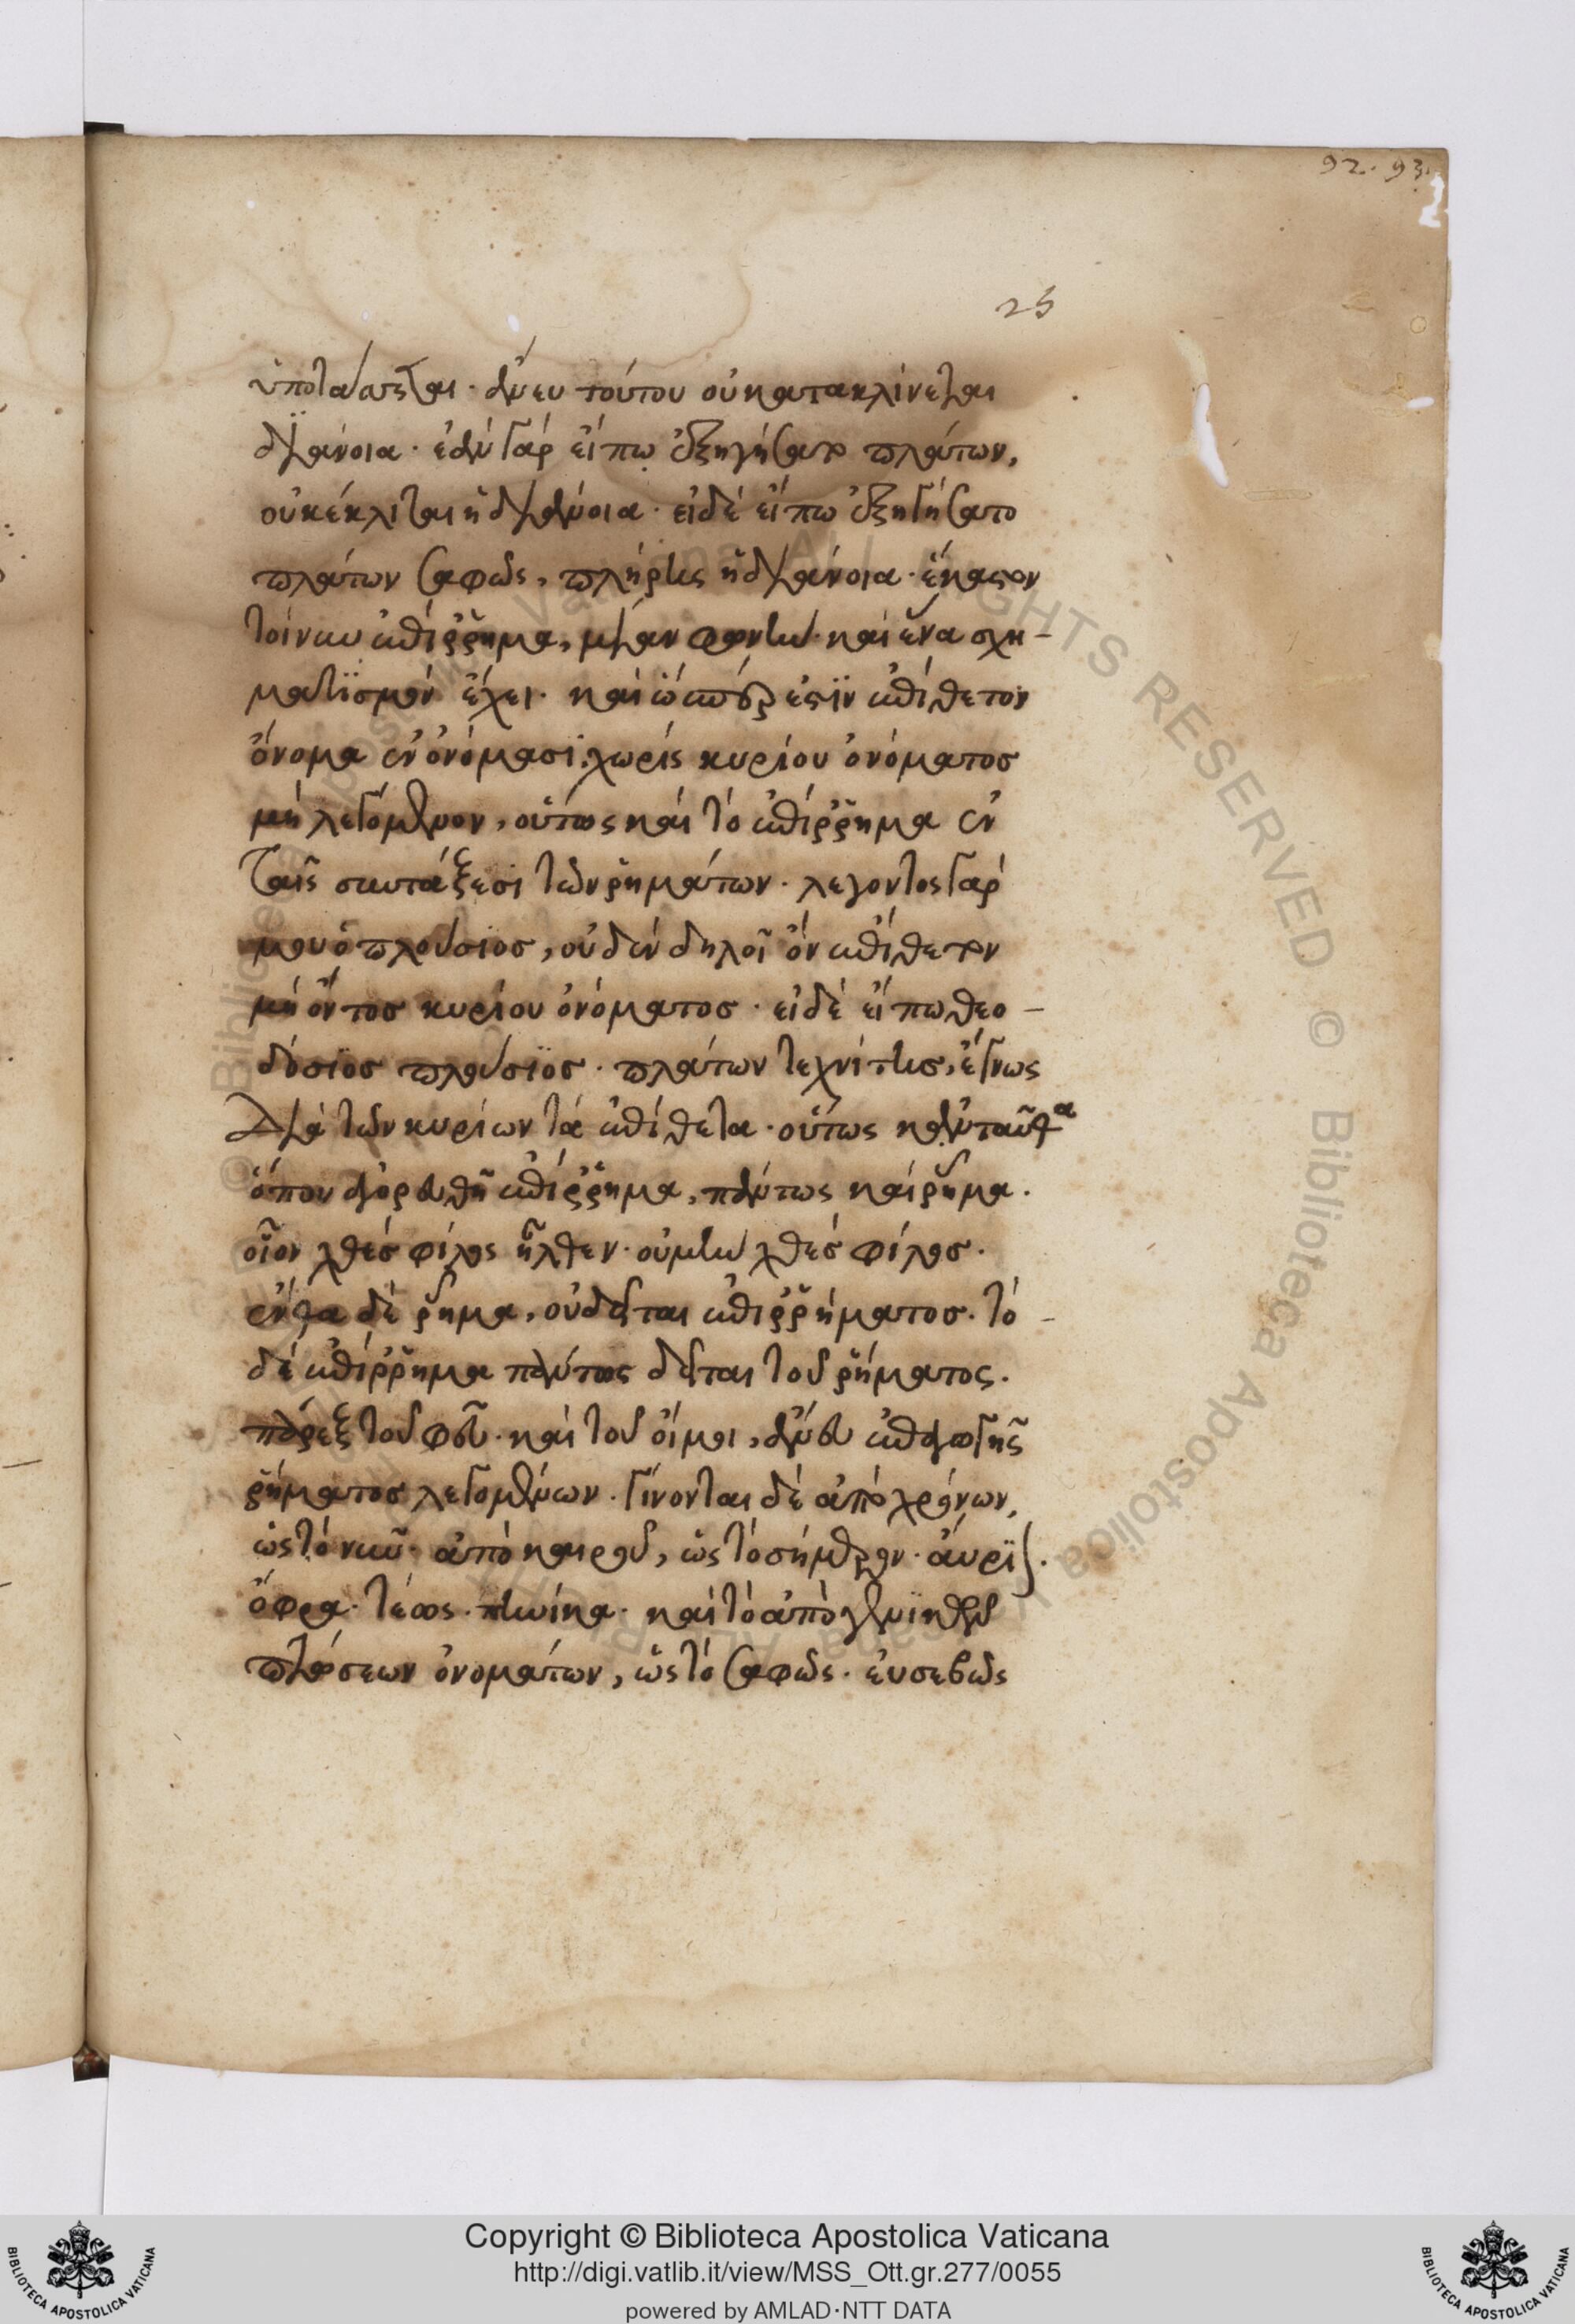 92. 93.
25
ὑποτάσσεται· ἄνευ τούτου οὐ κατακλίνεται
διάνοια· ἐὰν γάρ εἴπω ἐξηγήσατο πλάτων,
οὐ κέκλιται ἡ διάνοια· εἰ δέ εἴπω ἐξηγήσατο
πλάτων σαφῶς, πλήρης ἡ διάνοια· ἕκαστον
τοίνυν ἐπίρρημα, μίαν φωνὴν καὶ ἕνα σχη-
ματϊσμὸν ἔχει· καὶ ὥσπερ ἐστὶν ἐπίθετον
ὄνομα ἐν ὀνόμασι χωρίς κυρίου ὀνόματος
μὴ λεγόμενον, οὕτως καὶ τὸ ἐπίρρημα ἐν
ταῖς συντάξεσι τῶν ῥημάτων· λέγοντος γάρ
μου ὁ πλούσϊος, οὐδὲν δηλοῖ ὂν ἐπίθετον
μὴ ὄντος κυρίου ὀνόματος· εἰ δὲ εἴπω θεο-
δόσϊος πλούσϊος· πλάτων τεχνίτης, ἔγνως
διὰ τῶν κυρίων τὰ ἐπίθετα· οὕτως κἀνταῦθα
ὅπου εὑρεθῆ ἐπίρρημα, πάντως καὶ ῥῆμα·
οἷον χθές φίλος ἦλθεν· οὐ μὴν χθές φίλος·
ἔνθα δὲ ῥῆμα, οὐ δεῖται ἐπιρρήματος· τὸ
δὲ ἐπίρρημα πάντως δεῖται τοῦ ῥήματος·
πάρεξ τοῦ φεῦ· καὶ τοῦ οἴμοι, ἄνευ ἐπαγωγῆς
ῥήματος λεγομένων· γίνονται δὲ ἀπὸ χρόνων,
ὡς τὸ νῦν· ἀπὸ καιροῦ, ὡς τὸ σήμερον· αὔριον·
ὄφρα· τέως· πηνίκα· καὶ τὸ ἀπὸ γενϊκῶν
πτώσεων ὀνομάτων, ὡς τὸ σαφῶς· εὐσεβῶς
Copyright © Biblioteca Apostolica Vaticana
http://digi.vatlib.it/view/MSS_Ott.gr.277/0055
powered by AMLAD·NTT DATA